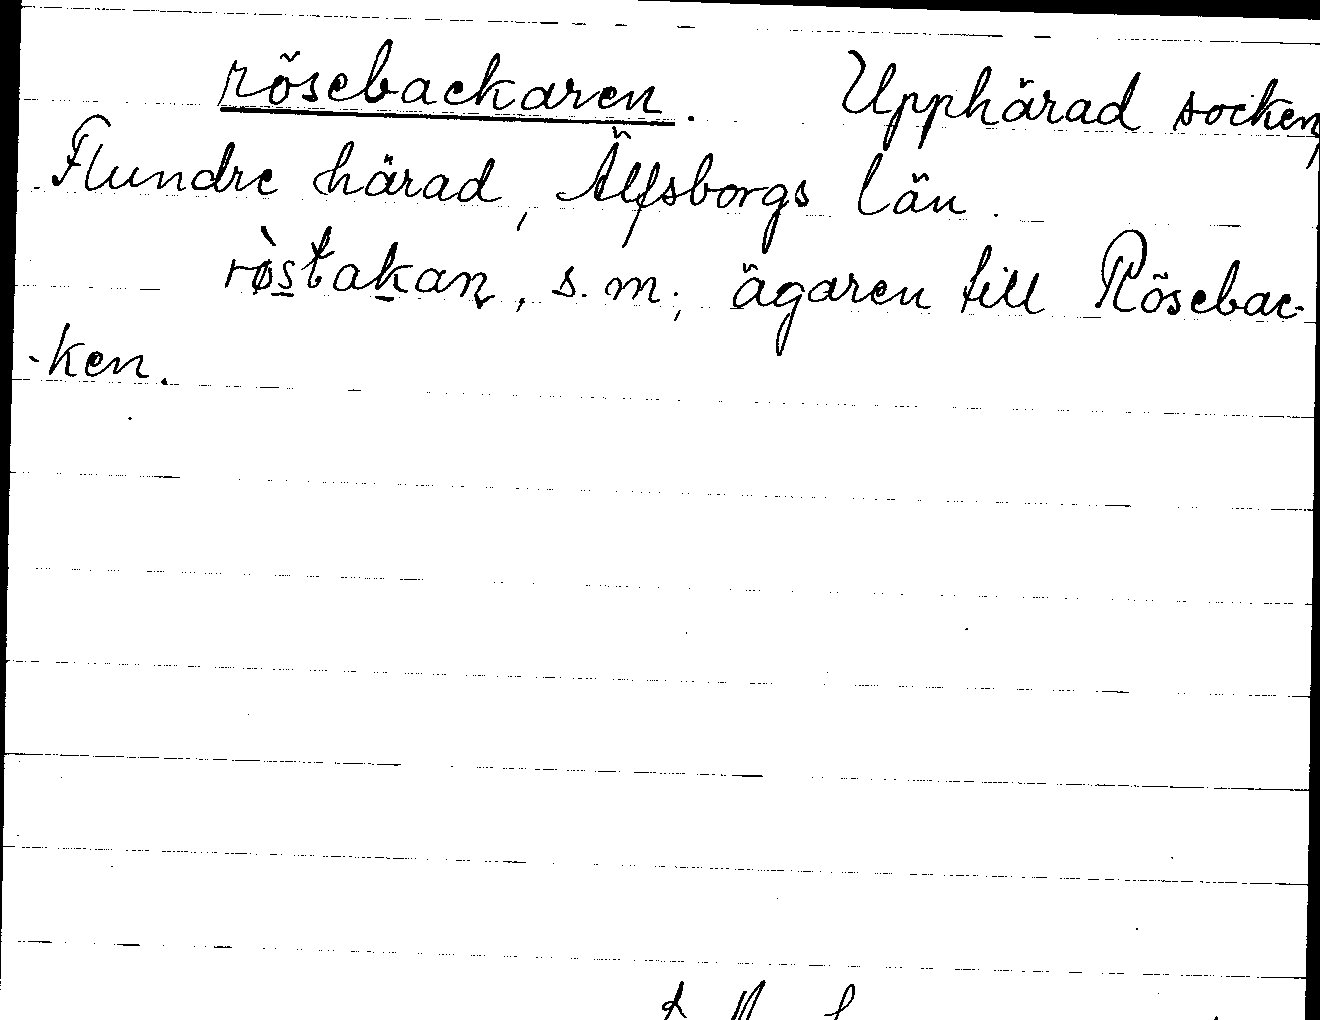 rösebackaren. Upphärad socken,
Flundre härad, Älfsborgs län.
rø̀stakan, s. m., ägaren till Rösebac-
-ken.